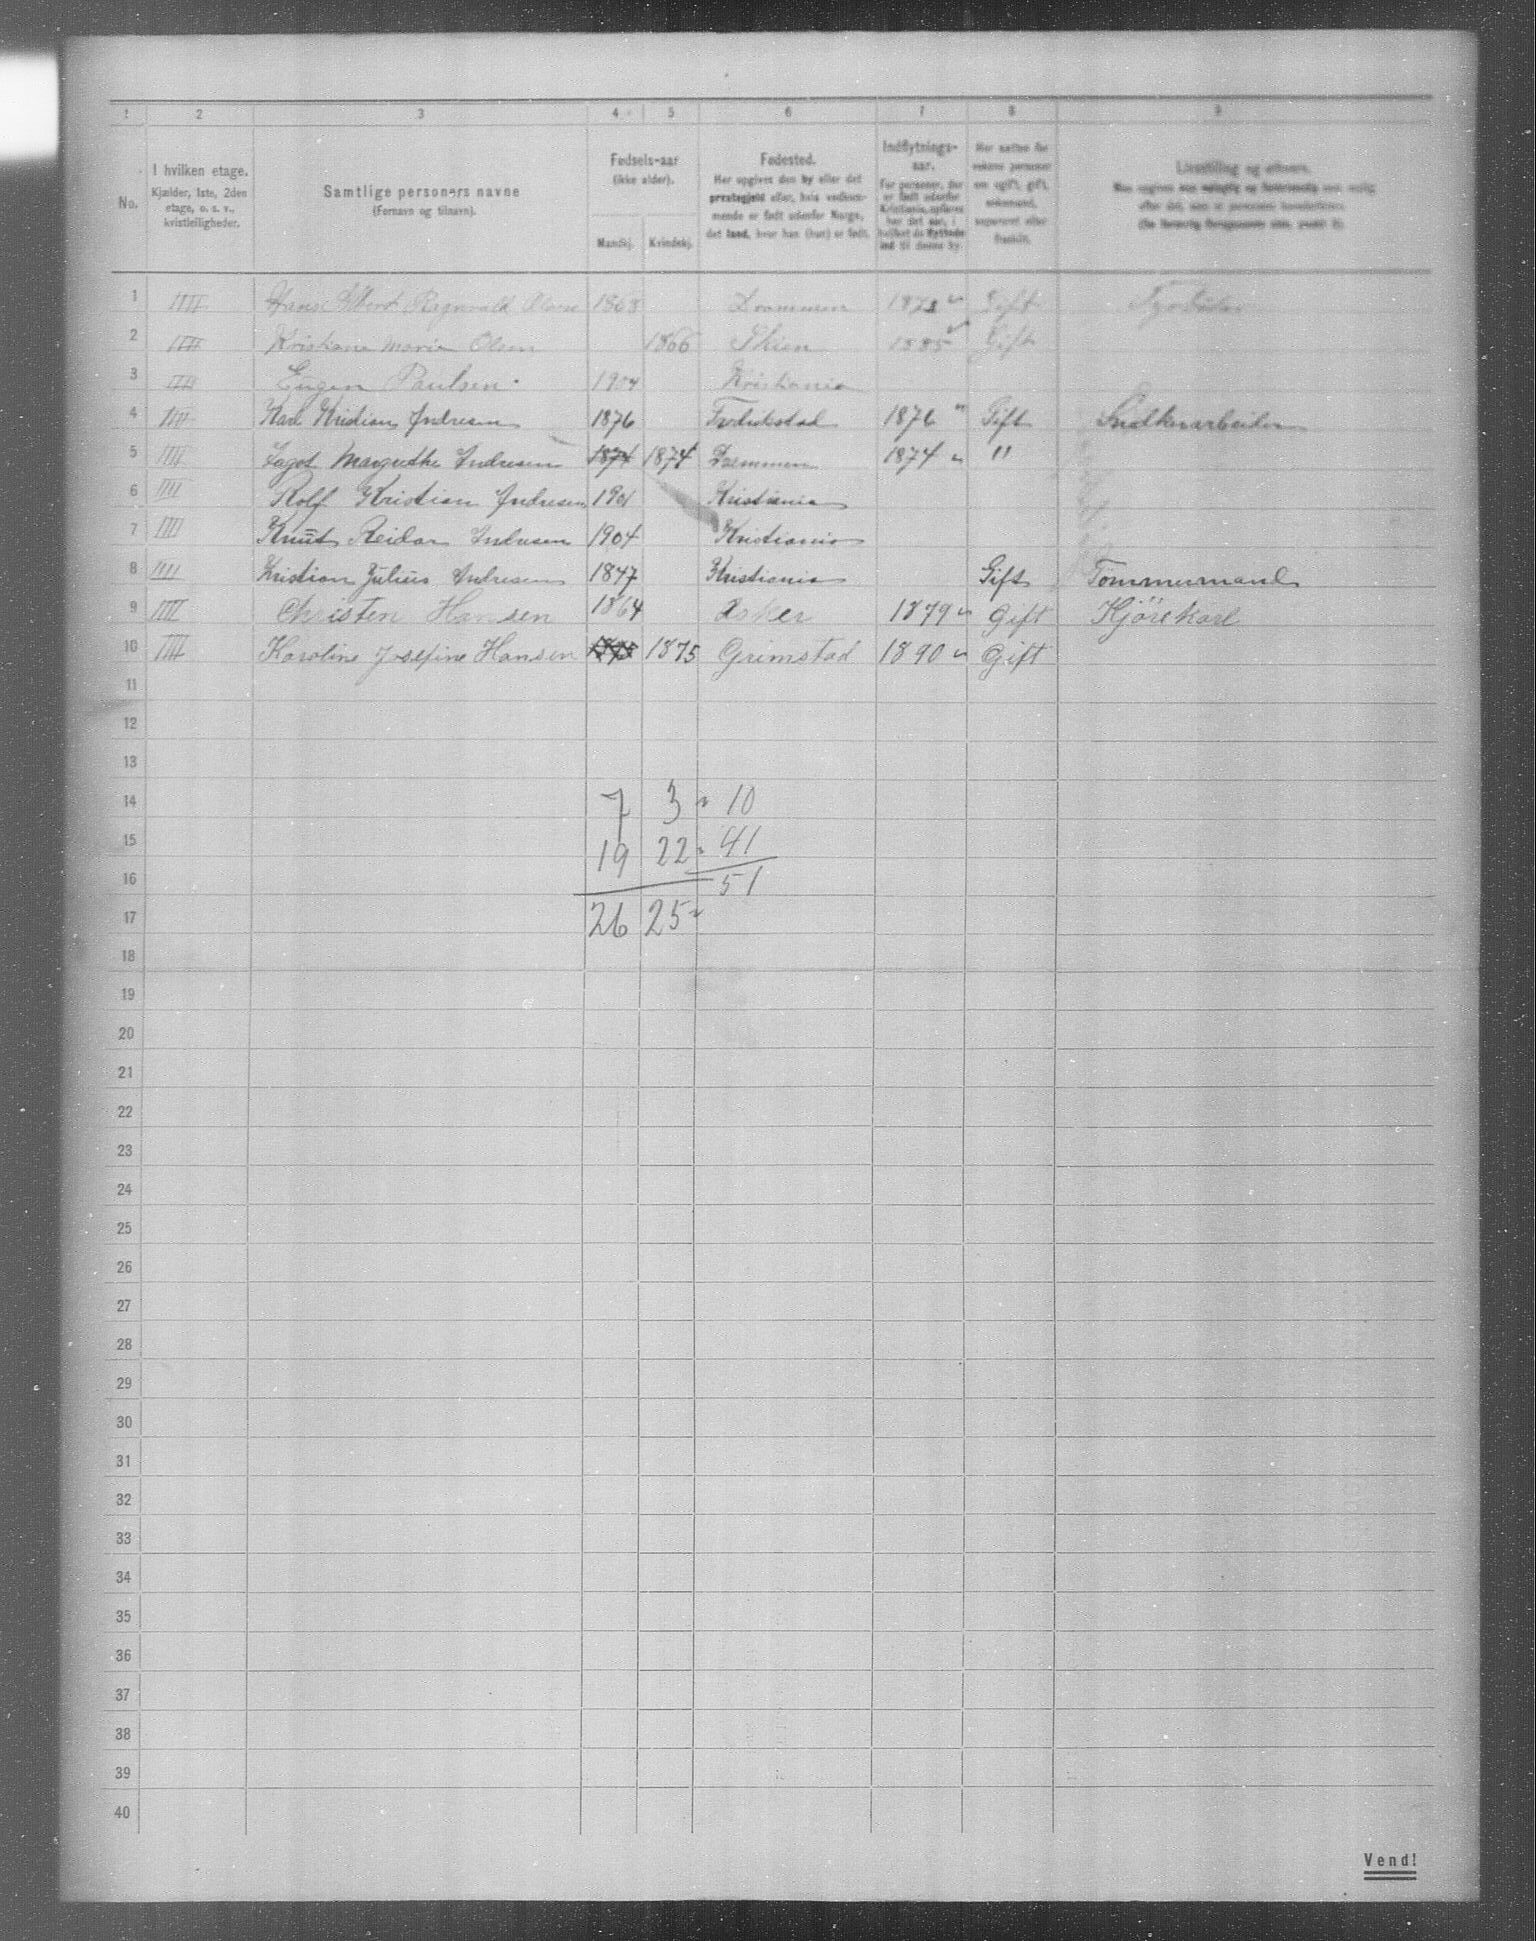 1 2 3 4 5 6 7 8 9
No.
I hvilken etage.
Kjælder, 1ste, 2den
etage, o. s. v.,
kvistleiligheder.
Samtlige personers navne
(Fornavn og tilnavn).
Fødsels-aar
(ikke alder).
Mandkj. Kvindekj.
Fødested.
Her opgives den by eller det
præstegjeld eller, hvis vedkom-
mende er født udenfor Norge,
det land, hvor han (hun) er født.
Indflytnings-
aar.
For personer, der
er født udenfor
Kristiania, opføres
her det aar, i
hvilket de flyttede
ind til denne by.
Her sættes for
voksne personer
om ugift, gift,
enkemand,
separeret eller
fraskilt.
Livsstilling og erhverv.
1 IIII Hans Albert Olsen 1863 Drammen Gift Fyrbøder
2 IIII Kristiane Marie Olsen 1866 Skien 1885 Gift
3 IIII Eugen Paulsen 1904 Kristiania
4 IIII Karl Kristian Indresen 1876 1876 Gift Snedkerarbeider
5 IIII Margrethe Indresen 1874 1874 Drammen 1874 "
6 IIII Rolf Kristian Indresen 1901 Kristiania
7 IIII Knut Reidar Indresen 1904 Kristiania
8 IIII Kristian Julius Indresen 1847 Kristiania Gift Tømmermand
9 IIII Christen Hansen 1864 Asker 1879 Gift Kjørekarl
10 IIII Karoline Josefine Hansen 1875 1875 Grimstad 1890 Gift
11
12
13
14 7 3 10
15 19 22 41
16 51
17 26 25
18
19
20
21
22
23
24
25
26
27
28
29
30
31
32
33
34
35
36
37
38
39
40
Vend!